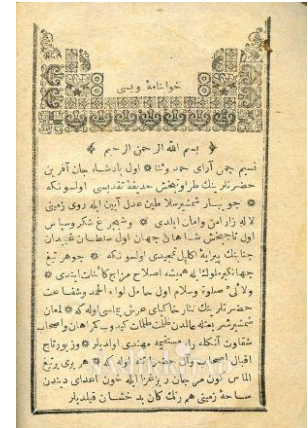 خوابنامهٔ ویسی
بسم الله الرحمن الرحیم
نسیم چمن آرای حمد وثنا اول پادشاه جان آفرین
حضرتلرینك طراوتبخش حدیقهٔ تقدیسی اولسونکه
جویبار شمشیر سلاطین عدل آیین ایله روی زمینی
لاله زار امن وامان ایلدی وشکر وسپاس
اول تاجبخش شاهان جهان اول سلطان
جنابنك پیرایهٔ اکلیل تمجیدی اولسونکه جوهر تیغ
جهانکیر ملوك ایله همیشه اصلاح مزاج کائنات ایتدی
صلوة وسلام اول حامل لواء الحمد وشفاعت
حضرتلرینك نثار خاکپای عرش اولسونکه لمعان
شمشیر عالمدن ظلمات کفر واصحاب
شقاوت مهتدی اولدیلر
اقبال اصحاب وآل حضراتنه اوله که هر بری تیغ
الماس کون مرجان ایله خون اعدای دیندن
ساحهٔ زمینی همرنك کان بدخشان قیلدیلر